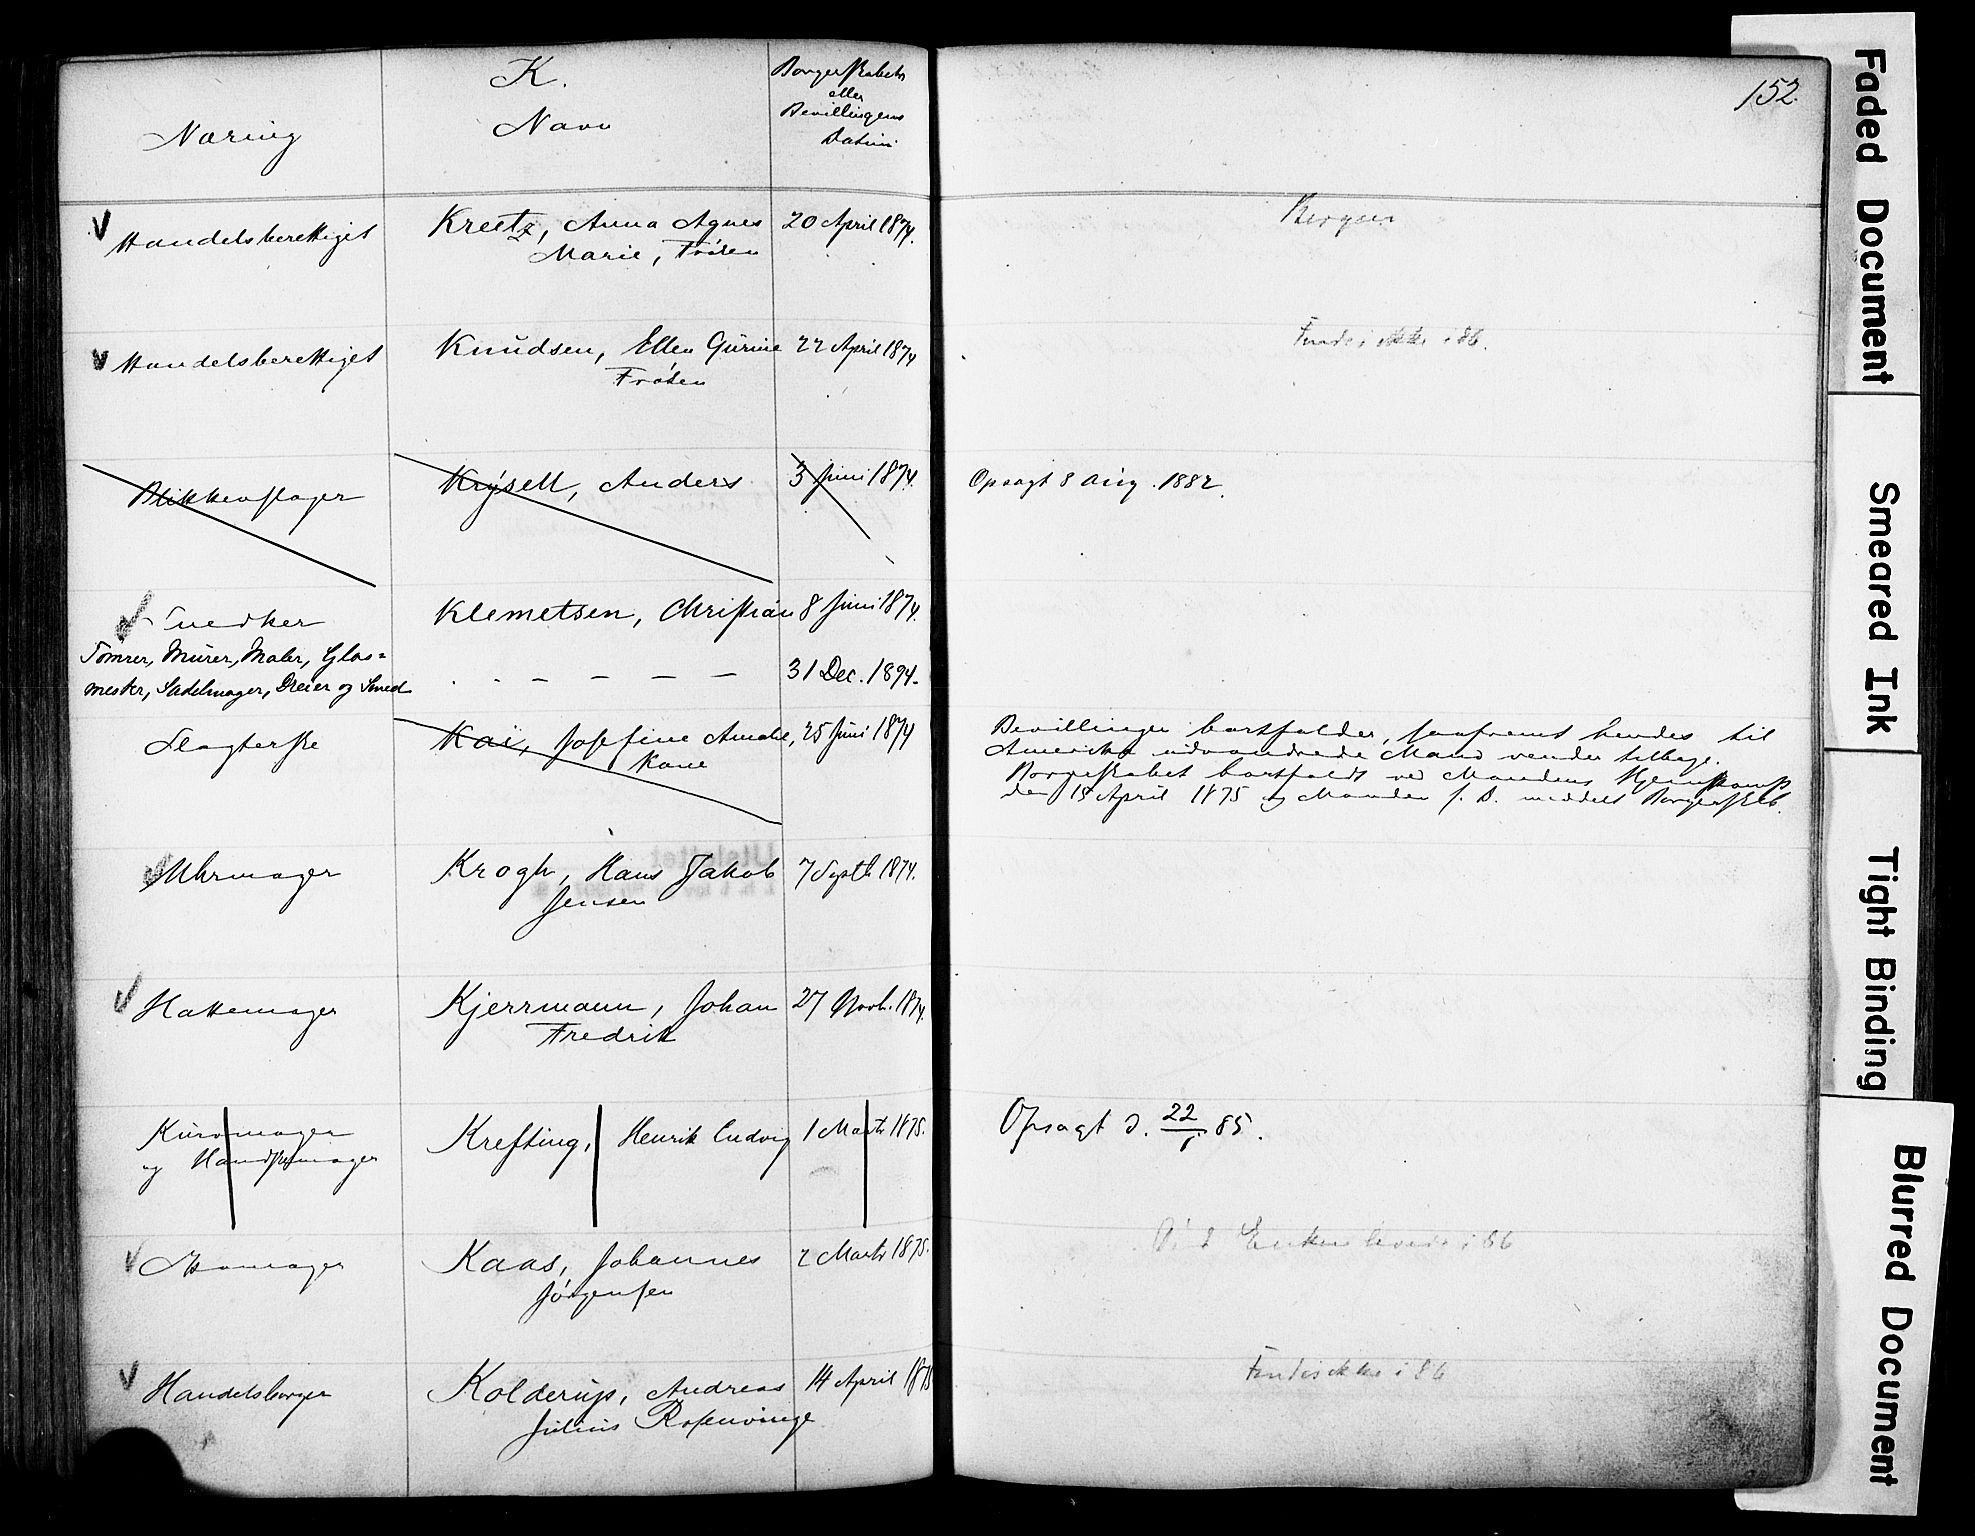 K.
Næring
Navn
Borgerskabets
eller
Bevillingens
Datum
152.
Handelsberettiget
Kreetz, Anna Agnes
Marie, Frøken
20 April 1874.
Bergen
Handelsberettiget
Knudsen, Ellen Gurine
Frøken
22 April 1874
Findes ikke i 86.
Blikkenslager
Krysell, Anders
3 Juni 1874.
Opsagt 8 Aug. 1882.
Snedker
Klemetsen, Christian
8 Juni 1874.
Tømrer, Murer, Maler, Glas=
mester, Sadelmager, Dreier og Smed
- - - - - -
31 Dec. 1894.
Slagterske
Kai, Josefine Amalie,
Kone
25 Juni 1874
Bevillingen bortfalder, saafremt hendes til
Amerika udvandrede Mand vender tilbage.
Borgerskabet bortfaldt ved Mandens Hjemkomst
den 15 April 1875 og Manden s. D. meddelt Borgerskb.
Uhrmager
Krogh, Hans Jakob
Jensen
7 Septb 1874.
Hattemager
Kjerrmann, Johan
Fredrik
27 Novb. 1874.
Kurvmager
og Handskemager
Krefting, Henrik Ludvig
1 Marts 1875.
Opsagt d. 22/1 85.
Skomager
Kaas, Johannes
Jørgensen
2 Marts 1875.
Enken lever i 86
Handelsborger
Kolderup, Andreas
Julius Rosenvinge
14 April 1875
Findes ikke i 86
Faded Document
Smeared Ink
Tight Binding
Blurred Document